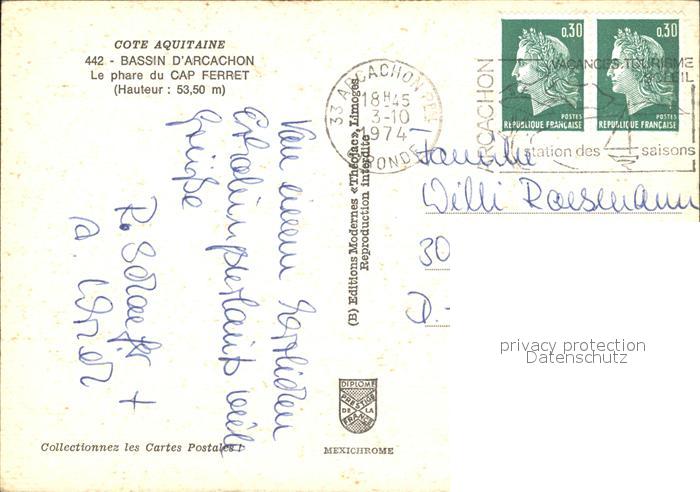 COTE AQUITAINE
442 - BASSIN D'ARCACHON
Le phare du CAP FERRET
(Hauteur : 53,50 m)
Von einem herrlichen
viele
Grüße
R. Schaefer +
a.
Collectionnez les Cartes Postales !
(B) Editions Modernes «Théojac», Limoges
Reproduction interdite
DIPLOME
PRESTIGE
DE LA
FRANCE
MEXICHROME
33 ARCACHON PPAL
18H45
3-10
1974
GIRONDE
0,30
POSTES
REPUBLIQUE FRANÇAISE
0,30
POSTES
REPUBLIQUE FRANÇAISE
ARCACHON
VACANCES TOURISME
SOLEIL
station des 4 saisons
Familie
Willi Roesemann
30
D.-
privacy protection
Datenschutz